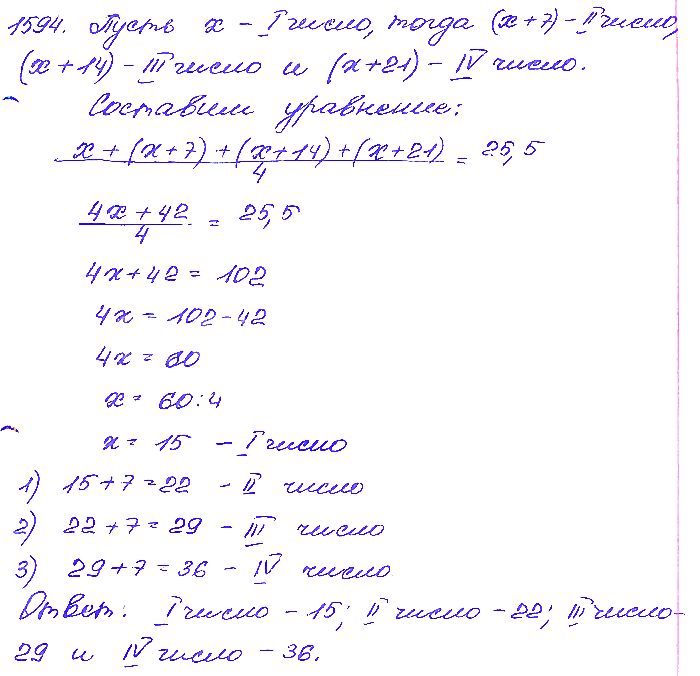 1594. Пусть x - I число, тогда (x+7) - II число,
(x+14) - III число и (x+21) - IV число.
Составим уравнение:
x + (x+7) + (x+14) + (x+21) / 4 = 25,5
4x + 42 / 4 = 25,5
4x + 42 = 102
4x = 102 - 42
4x = 60
x = 60 : 4
x = 15 - I число
1) 15 + 7 = 22 - II число
2) 22 + 7 = 29 - III число
3) 29 + 7 = 36 - IV число
Ответ: I число - 15; II число - 22; III число -
29 и IV число - 36.